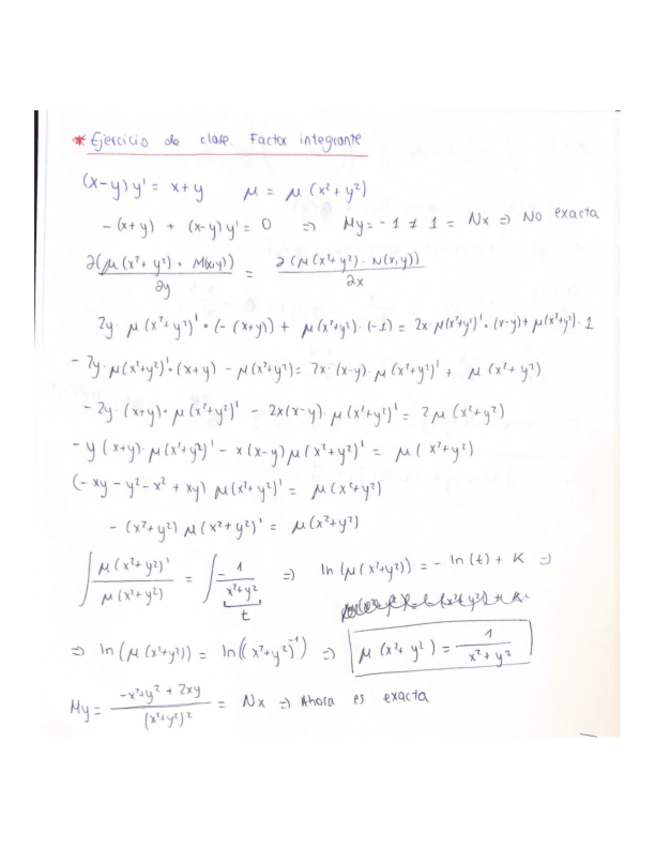 * Ejercicio de clase. Factor integrante
(x-y) y' = x+y    μ = μ(x²+y²)
-(x+y) + (x-y) y' = 0  ⇒  My = -1 ≠ 1 = Nx ⇒ No exacta
∂(μ(x²+y²) · M(x,y))/∂y = ∂(μ(x²+y²) · N(x,y))/∂x
2y · μ(x²+y²)' · (-(x+y)) + μ(x²+y²) · (-1) = 2x · μ(x²+y²)' · (x-y) + μ(x²+y²) · 1
-2y · μ(x²+y²)' · (x+y) - μ(x²+y²) = 2x · (x-y) · μ(x²+y²)' + μ(x²+y²)
-2y · (x+y) · μ(x²+y²)' - 2x(x-y) · μ(x²+y²)' = 2μ(x²+y²)
-y(x+y) · μ(x²+y²)' - x(x-y) μ(x²+y²)' = μ(x²+y²)
(-xy - y² - x² + xy) μ(x²+y²)' = μ(x²+y²)
-(x²+y²) μ(x²+y²)' = μ(x²+y²)
∫ μ(x²+y²)'/μ(x²+y²) = ∫ -1/(x²+y²)  ⇒  ln(μ(x²+y²)) = -ln(t) + K ⇒
t
⇒ ln(μ(x²+y²)) = ln((x²+y²)⁻¹) ⇒ μ(x²+y²) = 1/(x²+y²)
My = (-x²+y²+2xy)/(x²+y²)² = Nx ⇒ Ahora es exacta